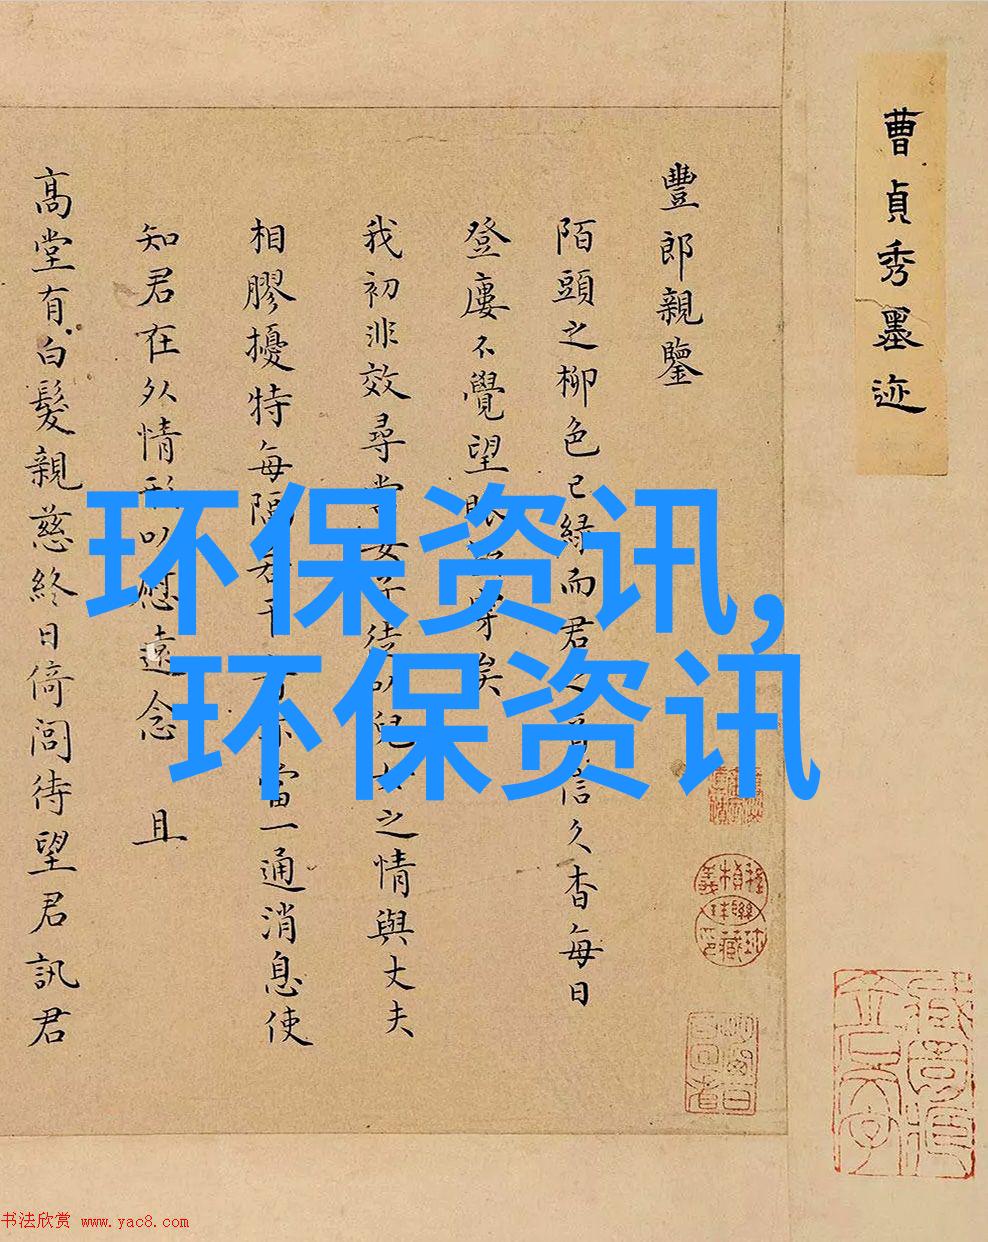 曹貞秀墨迹
豐郎親鑒
陌頭之柳色已緑而君之音信久杳每日
登廔不覺望眼穿矣
我初非效尋常女子徒以兒女之情與丈夫
相膠擾特每隔若干亦當一通消息使
知君在外情形以慰遠念 且
高堂有白髮親慈終日倚閭待望君訊君
环保资讯,
环保资讯
书法欣赏 www.yac8.com